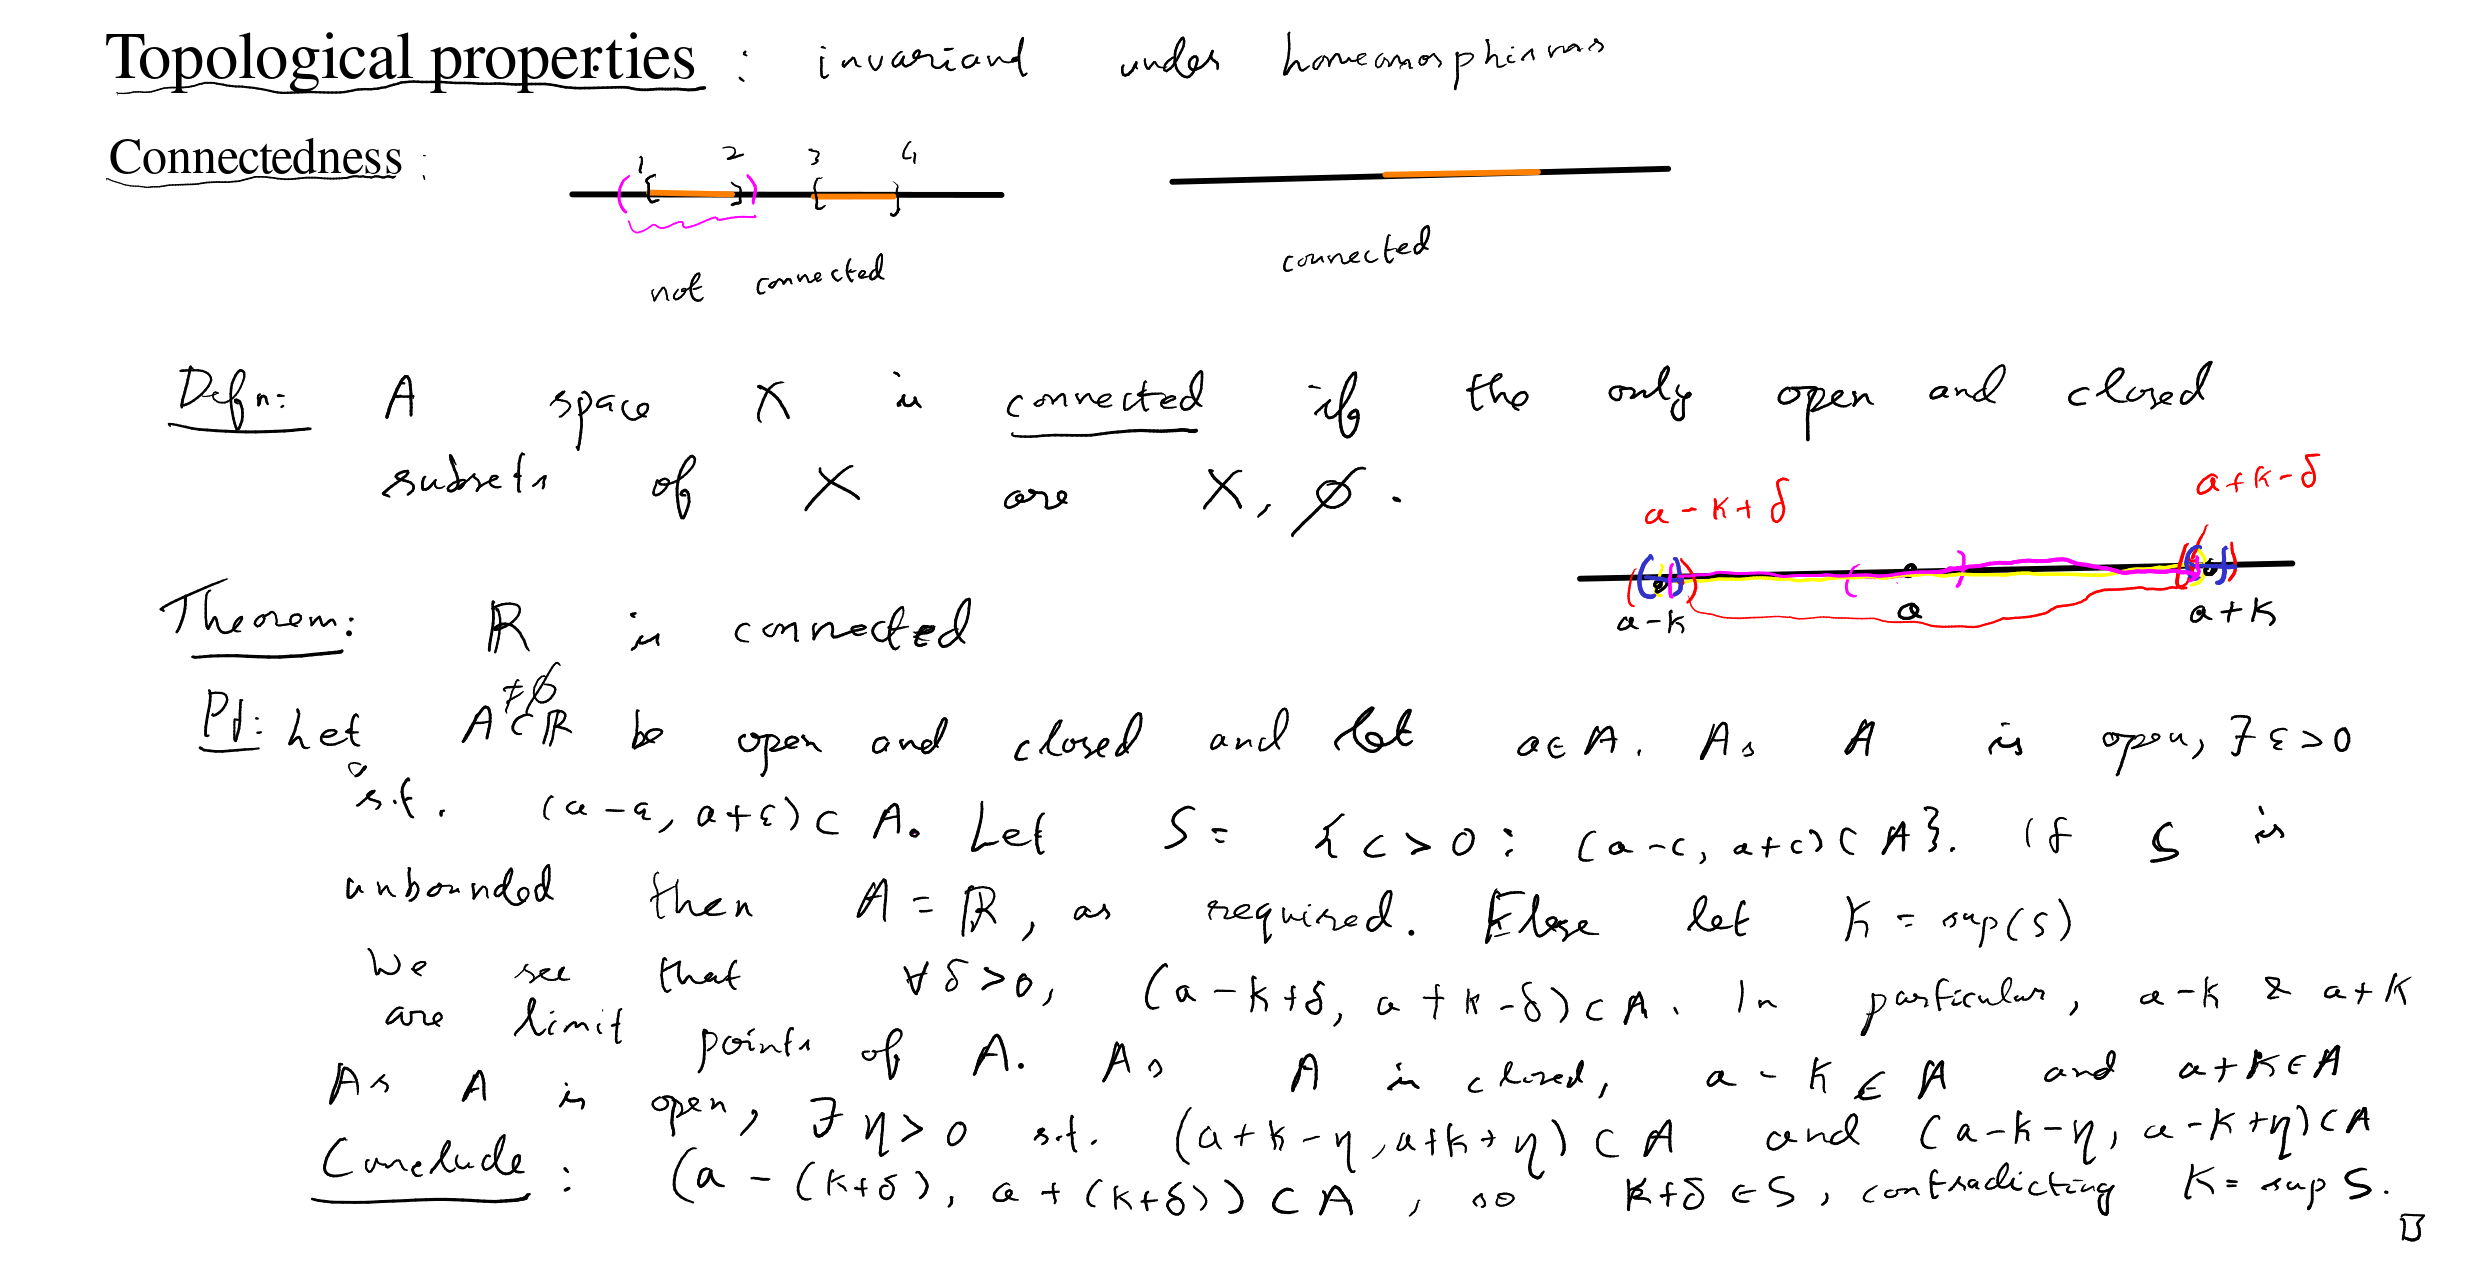 Topological properties : invariand under homeomorphisms
Connectedness :
1 2 3 4
not connected
connected
Defn: A space X is connected if the only open and closed
subsets of X are X, ∅.
a-K+δ a+K-δ
a-K a a+K
Theorem: ℝ is connected
Pf: Let A ⊂ ℝ ≠∅ be open and closed and let a∈A. As A is open, ∃ ε>0
s.t. (a-ε, a+ε) ⊂ A. Let S = {c>0 : (a-c, a+c) ⊂ A}. If S is
unbounded then A = ℝ, as required. Else let K = sup(S)
We see that ∀ δ>0, (a-K+δ, a+K-δ) ⊂ A. In particular, a-K & a+K
are limit points of A. As A is closed, a-K ∈ A and a+K ∈ A
As A is open, ∃ η>0 s.t. (a+K-η, a+K+η) ⊂ A and (a-K-η, a-K+η) ⊂ A
Conclude : (a-(K+δ), a+(K+δ)) ⊂ A, so K+δ ∈ S, contradicting K = sup S.
□